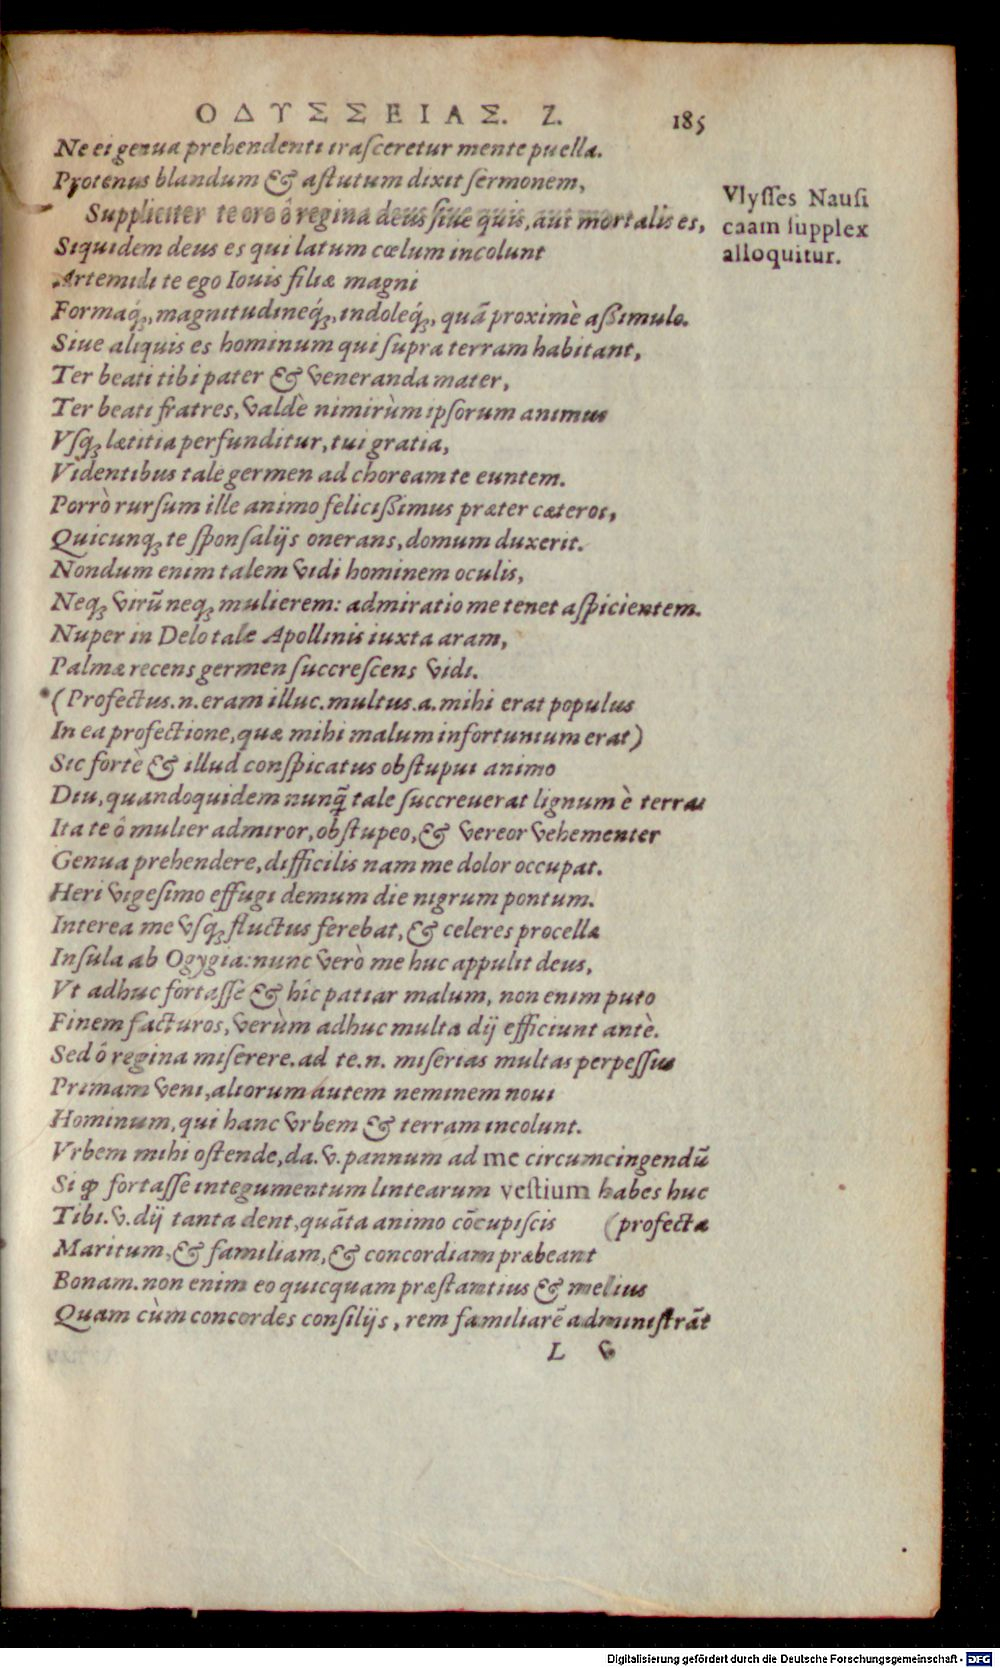 ΟΔΥΣΣΕΙΑΣ. Ζ. 185
Ne ei genua prehendenti irasceretur mente puella.
Protenus blandum & astutum dixit sermonem,
Suppliciter te oro ô regina deus siue quis, aut mortalis es,
Siquidem deus es qui latum cœlum incolunt
Artemidi te ego Iouis filiæ magni
Formaq́;, magnitudineq́;, indoleq́;, quã proximè aßimulo.
Siue aliquis es hominum qui supra terram habitant,
Ter beati tibi pater & veneranda mater,
Ter beati fratres, valdè nimirùm ipsorum animus
Vsq; lætitia perfunditur, tui gratia,
Videntibus tale germen ad choream te euntem.
Porrò rursum ille animo felicißimus præter cæteros,
Quicunq; te sponsalijs onerans, domum duxerit.
Nondum enim talem vidi hominem oculis,
Neq; virũ neq; mulierem: admiratio me tenet aspicientem.
Nuper in Delo tale Apollinis iuxta aram,
Palmæ recens germen succrescens vidi.
(Profectus.n.eram illuc.multus.a.mihi erat populus
In ea profectione, quæ mihi malum infortunium erat)
Sic fortè & illud conspicatus obstupui animo
Diu, quandoquidem nunq̃ tale succreuerat lignum è terra
Ita te ô mulier admiror, obstupeo, & vereor vehementer
Genua prehendere, difficilis nam me dolor occupat.
Heri vigesimo effugi demum die nigrum pontum.
Interea me vsq; fluctus ferebat, & celeres procellæ
Insula ab Ogygia: nunc verò me huc appulit deus,
Vt adhuc fortasse & hîc patiar malum, non enim puto
Finem facturos, verùm adhuc multa dij efficiunt antè.
Sed ô regina miserere. ad te.n. miserias multas perpessus
Primam veni, aliorum autem neminem noui
Hominum, qui hanc vrbem & terram incolunt.
Vrbem mihi ostende, da.v.pannum ad me circumcingendũ
Si ꝙ fortasse integumentum lintearum vestium habes huc
Tibi.v.dij tanta dent, quãta animo cõcupiscis (profecta
Maritum, & familiam, & concordiam præbeant
Bonam. non enim eo quicquam præstantius & melius
Quam cùm concordes consilijs, rem familiarẽ administrãt
L v
Vlysses Nausi
caam supplex
alloquitur.
Digitalisierung gefördert durch die Deutsche Forschungsgemeinschaft - DFG